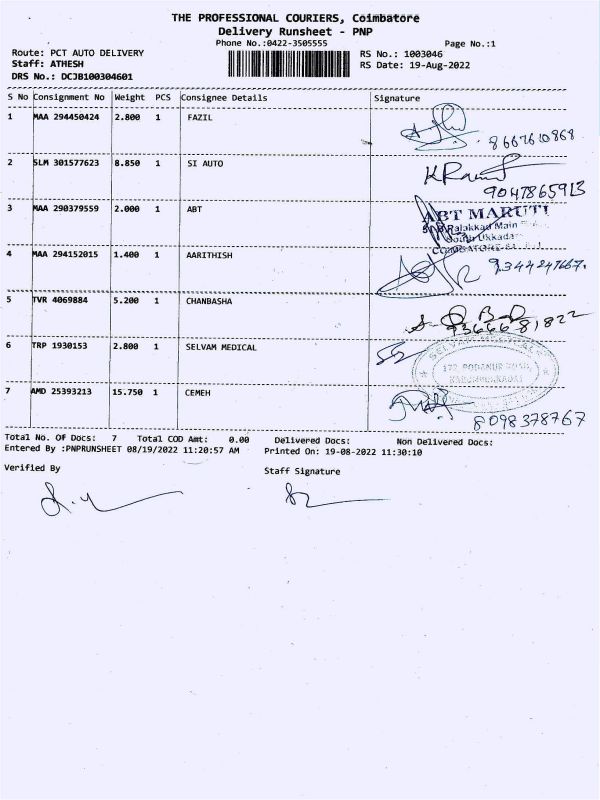 THE PROFESSIONAL COURIERS, Coimbatore
Delivery Runsheet - PNP
Phone No.:0422-3505555
Page No.:1
Route: PCT AUTO DELIVERY
RS No.: 1003046
Staff: ATHESH
RS Date: 19-Aug-2022
DRS No.: DCJB100304601
S No Consignment No Weight PCS Consignee Details Signature
1 MAA 294450424 2.800 1 FAZIL
8667610868
2 SLM 301577623 8.850 1 SI AUTO
9047865913
3 MAA 290379559 2.000 1 ABT
ABT MARUTI
Palakkad Main
4 MAA 294152015 1.400 1 AARITHISH
9344247667.
5 TVR 4069884 5.200 1 CHANBASHA
6 TRP 1930153 2.800 1 SELVAM MEDICAL
172, PODANUR ROAD,
7 AMD 25393213 15.750 1 CEMEH
8098378767
Total No. Of Docs: 7 Total COD Amt: 0.00 Delivered Docs: Non Delivered Docs:
Entered By :PNPRUNSHEET 08/19/2022 11:20:57 AM Printed On: 19-08-2022 11:30:10
Verified By
Staff Signature